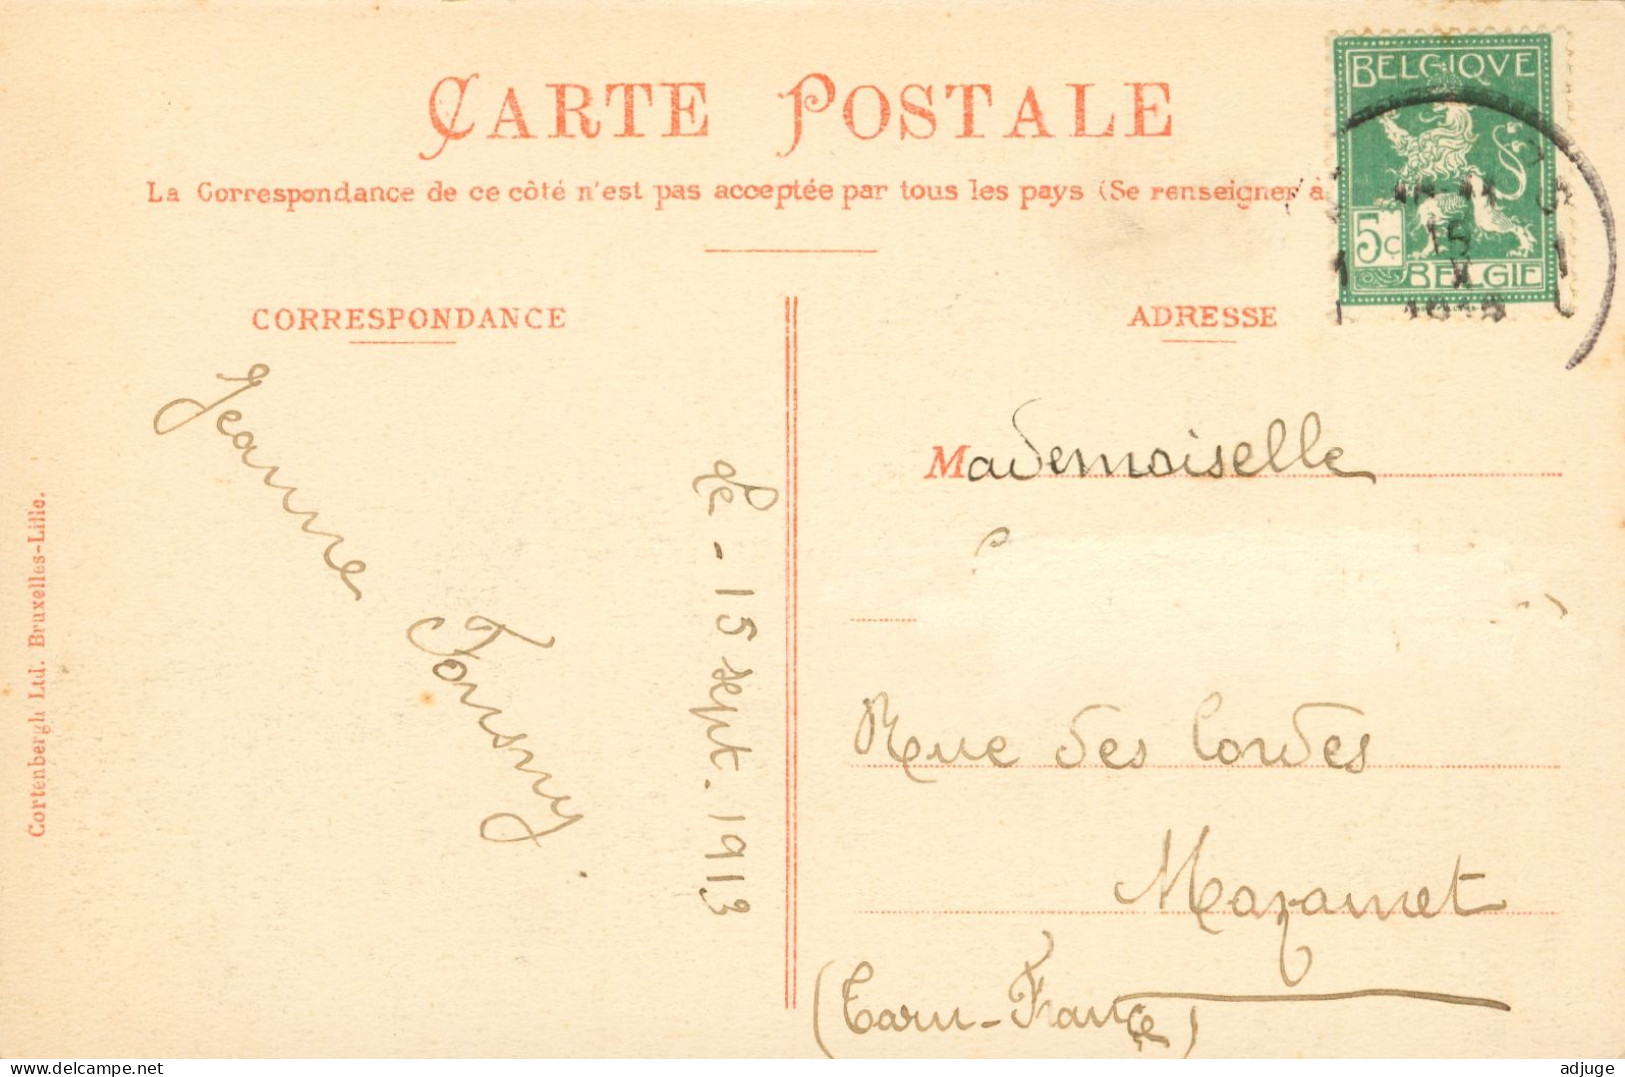 CARTE POSTALE
La Correspondance de ce côté n'est pas acceptée par tous les pays (Se renseigner à
BELGIQVE
5c
BELGIE
15
CORRESPONDANCE
ADRESSE
Jeanne
le - 15 sept. 1913
Mademoiselle
Rue des Cordes
Mazamet
(Tarn-France)
Cortenbergh Ltd. Bruxelles-Lille.
delcampe.net
adjuge